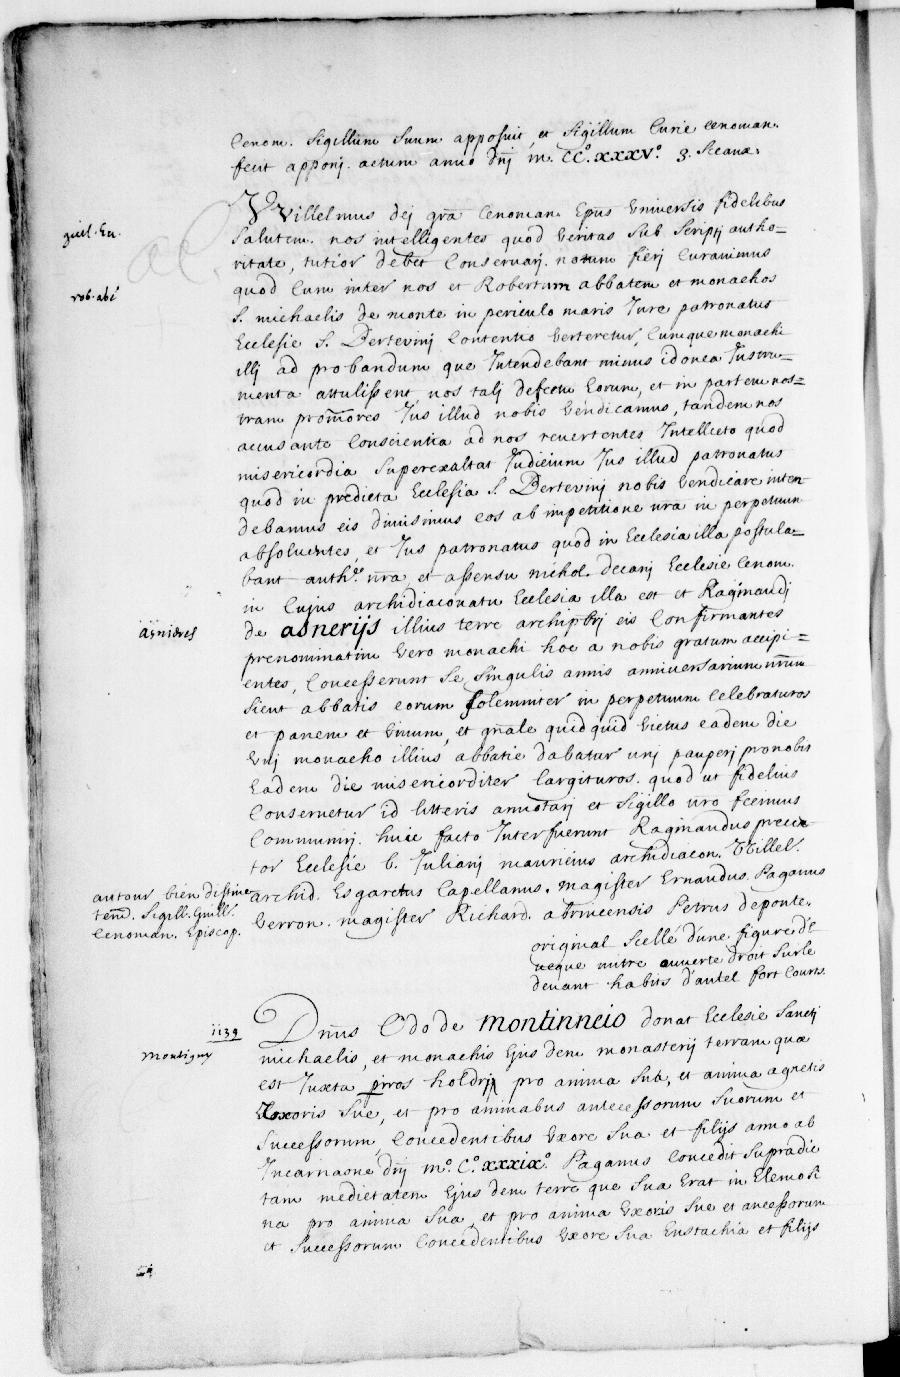 Cenom. Sigillum suum apposuit, et Sigillum Curie cenoman.
fecit apponj. actum anno dnj m. CC.º XXXVº. 3. Sceaux.
guil. Ep.
rob. abé
Willelmus dej grã Cenoman. Epũs Vniversis fidelibus
Salutem. nos intelligentes quod Veritas Sub Scriptj autho=
ritate, tutior debet Conservarj. notum fierj Curavimus
quod Cum inter nos et Robertum abbatem et monachos
S. michaelis de monte in periculo maris Jure patronatus
Ecclesie S. Dertevinj Contentio Verteretur, Cumque monachi
illj ad probandum que Intendebant minus idonea Instru=
menta attulissent, nos talj defectu Eorum, et in partem nos=
tram promõres Jus illud nobis Vendicamus, tandem nos
accusante Conscientia ad nos revertentes Intellecto quod
misericordia Superexaltat Judicium Jus illud patronatus
quod in predicta Ecclesia S. Dertevinj nobis Vendicare inten
debamus eis dimisimus eos ab impetitione nrã in perpetuum
absoluentes, et Jus patronatus quod in Ecclesia illa postula=
bant auth.te nrã, et assensu nichol. decanj Ecclesie Cenom.
in Cujus archidiaconatu Ecclesia illa est et Raginaudj
asnieres
de asnerijs illius terre archipbrj eis Confirmantes
prenominatim Vero monachi hoc a nobis gratum accipi=
entes, Concesserunt Se, Singulis annis anniversarium nrum
Sicut abbatis eorum Solemniter in perpetuum Celebraturos
et panem et Vinum, et gñale quidquid Victus eadem die
Vnj monacho illius abbatie dabatur unj pauperj pro nobis
Eadem die misericorditer largituros. quod ut fidelius
Conservetur id litteris annotarj et Sigillo nro fecimus
Communirj. huic facto Interfuerunt Raginaudus precen
tor Ecclesie b. Julianj mauricius archidiacon. Willel.
archid. Esgaretus Capellanus. magister Ernaudus. Paganus
Verron. magister Richard. abrincensis Petrus deponte.
autour bien distinc
temt. Sigill. Guill.
Cenoman. Episcop.
original Scellé d'une figure d'e
ueque mitre ouuerte droit Sur le
deuant habits d'autel fort Courts.
1139
montigny
Dnũs Odo de montinneio donat Ecclesie Sanctj
michaelis, et monachis Ejusdem monasterij terram quæ
est Juxta pirros holdrij pro anima Sua, et anima agnetis
Uxoris Sue, et pro animabus antecessorum Suorum et
Successorum, Concedentibus Vxore Sua et filijs anno ab
Incarnaone dnj mº. Cº. XXXIXº. Paganus Concedit Supradic
tam medietatem Ejusdem terre que Sua Erat in Elemosi
na pro anima Sua, et pro anima Vxoris Sue et ancessorum
et Successorum Concedentibus Vxore Sua Eustachia et filijs